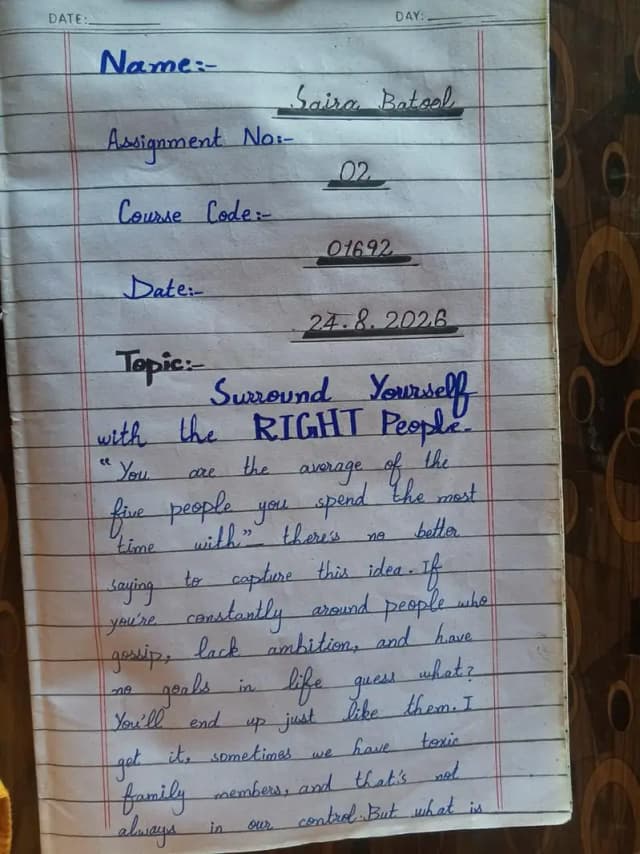 DATE: DAY:
Name:-
Saira Batool
Assignment No:-
02
Course Code:-
01692
Date:-
24.8.2026
Topic:-
Surround Yourself
with the RIGHT People-
"You are the average of the
five people you spend the most
time with" – there's no better
saying to capture this idea. If
you're constantly around people who
gossip, lack ambition, and have
no goals in life guess what?
You'll end up just like them. I
get it, sometimes we have toxic
family members, and that's not
always in our control. But what is